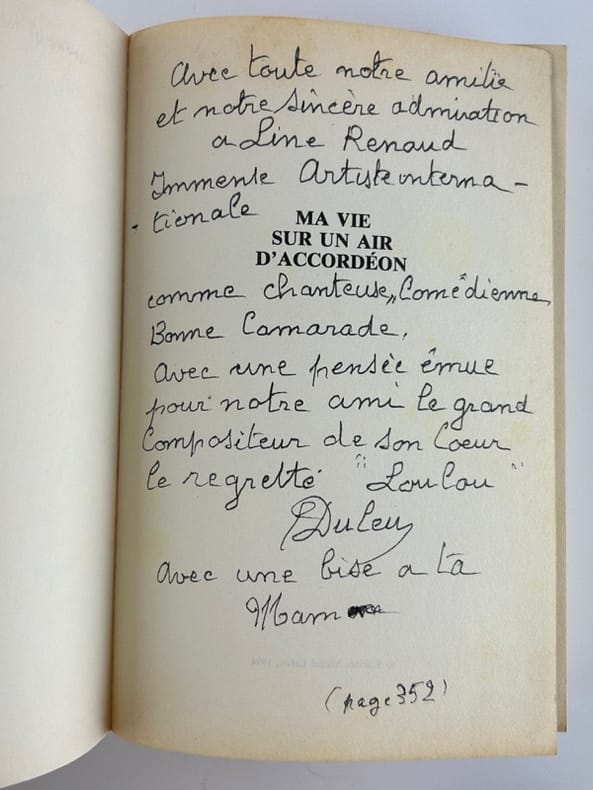 Avec toute notre amitié
et notre sincère admiration
a Line Renaud
Immense Artiste interna-
tionale
MA VIE
SUR UN AIR
D'ACCORDÉON
comme chanteuse, Comédienne,
Bonne Camarade,
avec une pensée émue
pour notre ami le grand
Compositeur de son Coeur
le regretté "Loulou"
EDuleu
avec une bise a ta
Maman
(page 352)